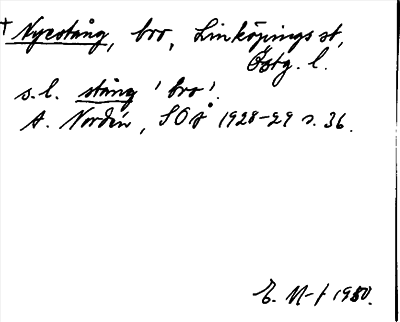 † Nycstång, bro, Linköpings st,
Östg. l.
s.l. stång 'bro'.
A. Nordén, SOÅ 1928-29 s. 36.
E. N-f 1980.